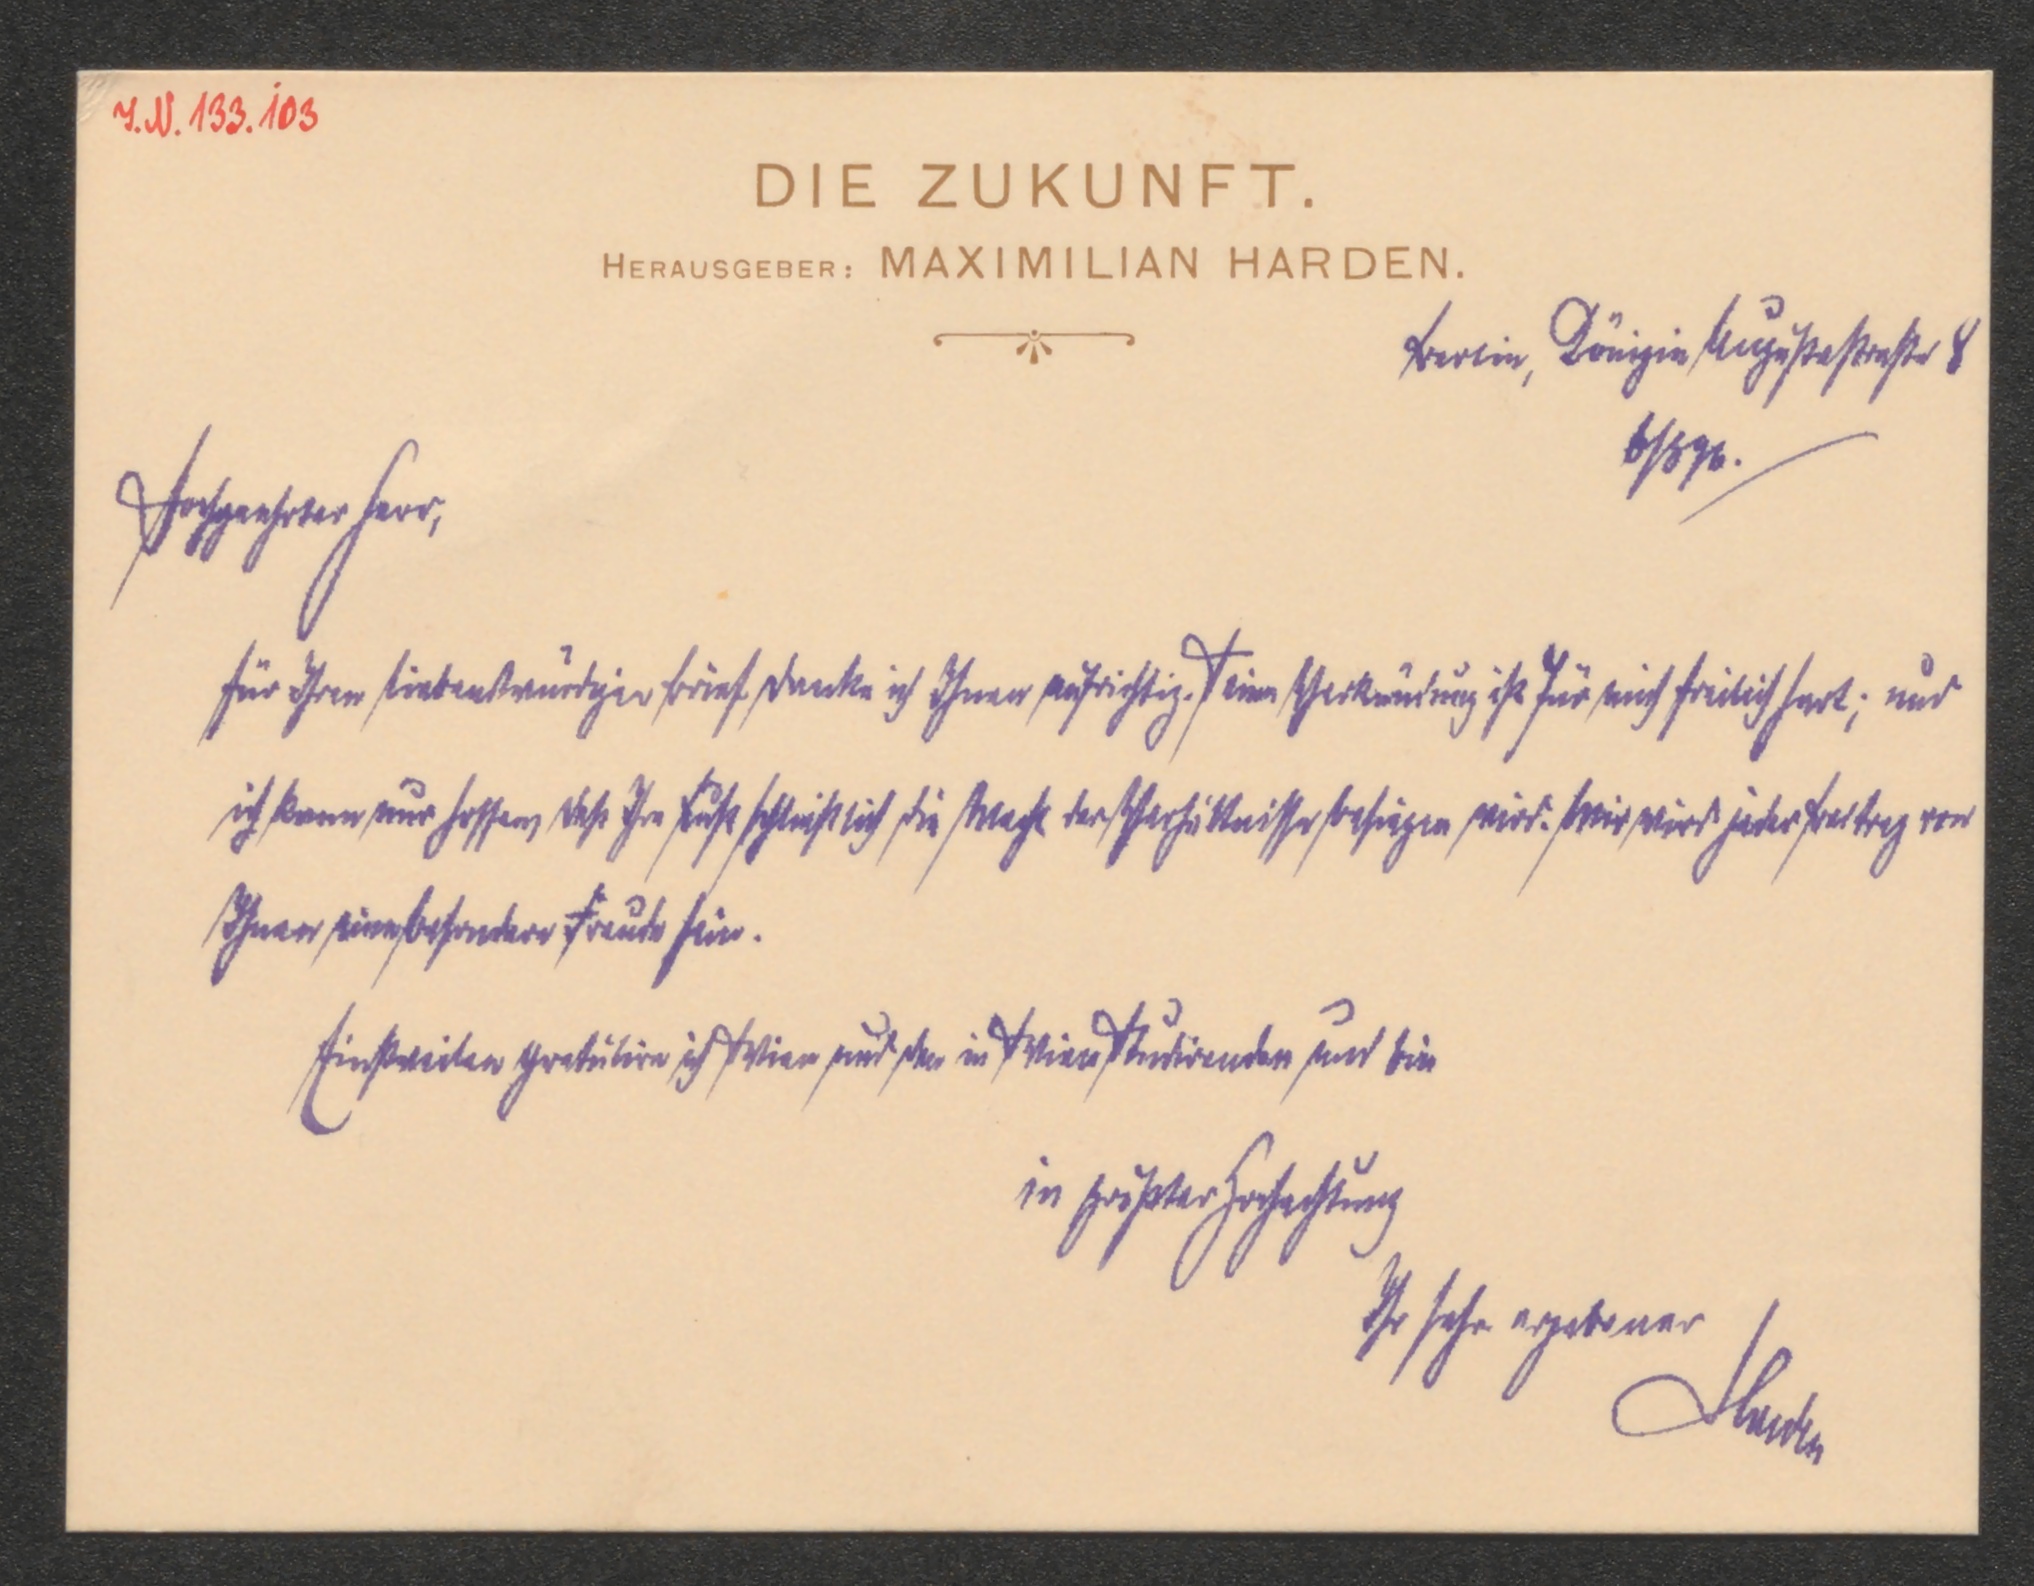 I.N. 133.103
DIE ZUKUNFT.
HERAUSGEBER: MAXIMILIAN HARDEN.
Berlin, Königin Augustastraße 8
Hochgeehrter Herr,
für Ihren liebenswürdigen Brief danke ich Ihnen aufrichtig. Seine Verkündung ist für mich freilich hart; und
ich kann nur hoffen, daß Ihre Lust schließlich die Macht der Verhältnisse besiegen wird. Mir wird jeder Beitrag von
Ihnen eine besondere Freude sein.
Einstweilen gratulire ich Wien und den in Wien Studirenden und bin
in größter Hochachtung
Ihr sehr ergebener
Harden